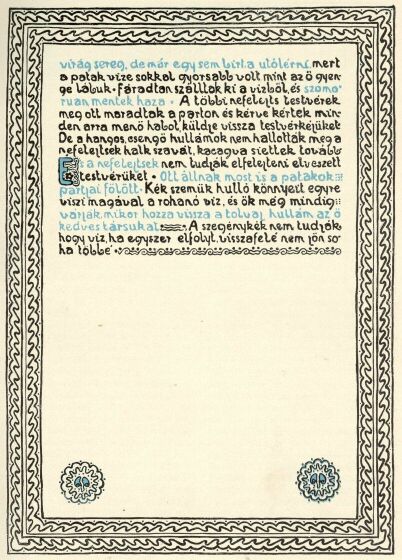 virág sereg, de már egy sem bírta utólérni mert
a patak vize sokkal gyorsabb volt mint az ő gyen-
ge lábuk. Fáradtan szálltak ki a vízből, és szomo-
rúan mentek haza. A többi nefelejts testvérek
meg ott maradtak a parton és kérve kértek min-
den arra menő habot, küldje vissza testvérkéjüket
De a hangos, csengő hullámok nem hallották meg a
nefelejtsek halk szavát, kacagva siettek tovább
És a nefelejtsek nem tudják elfelejteni elveszett
testvérüket. Ott állnak most is a patakok
partjai fölött. Kék szemük hulló könnyeit egyre
viszi magával a rohanó víz, és ők még mindig
várják, mikor hozza vissza a tolvaj hullám az ő
kedves társukat. A szegénykék nem tudják,
hogy víz, ha egyszer elfolyt, visszafelé nem jön so-
ha többé.